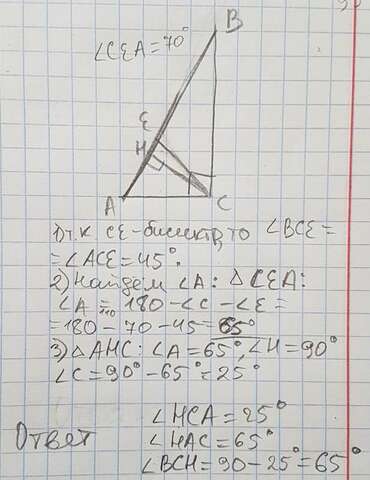 ∠CEA=70°
B
E
H
A
C
1) т.к CE-биссект, то ∠BCE=
=∠ACE=45°.
2) Найдем ∠A: △CEA:
∠A = 180-∠C-∠E=
=180-70-45=65°
3) △AHC: ∠A=65°, ∠H=90°
∠C=90°-65°=25°
∠HCA=25°
Ответ ∠HAC=65°
∠BCH=90-25°=65°